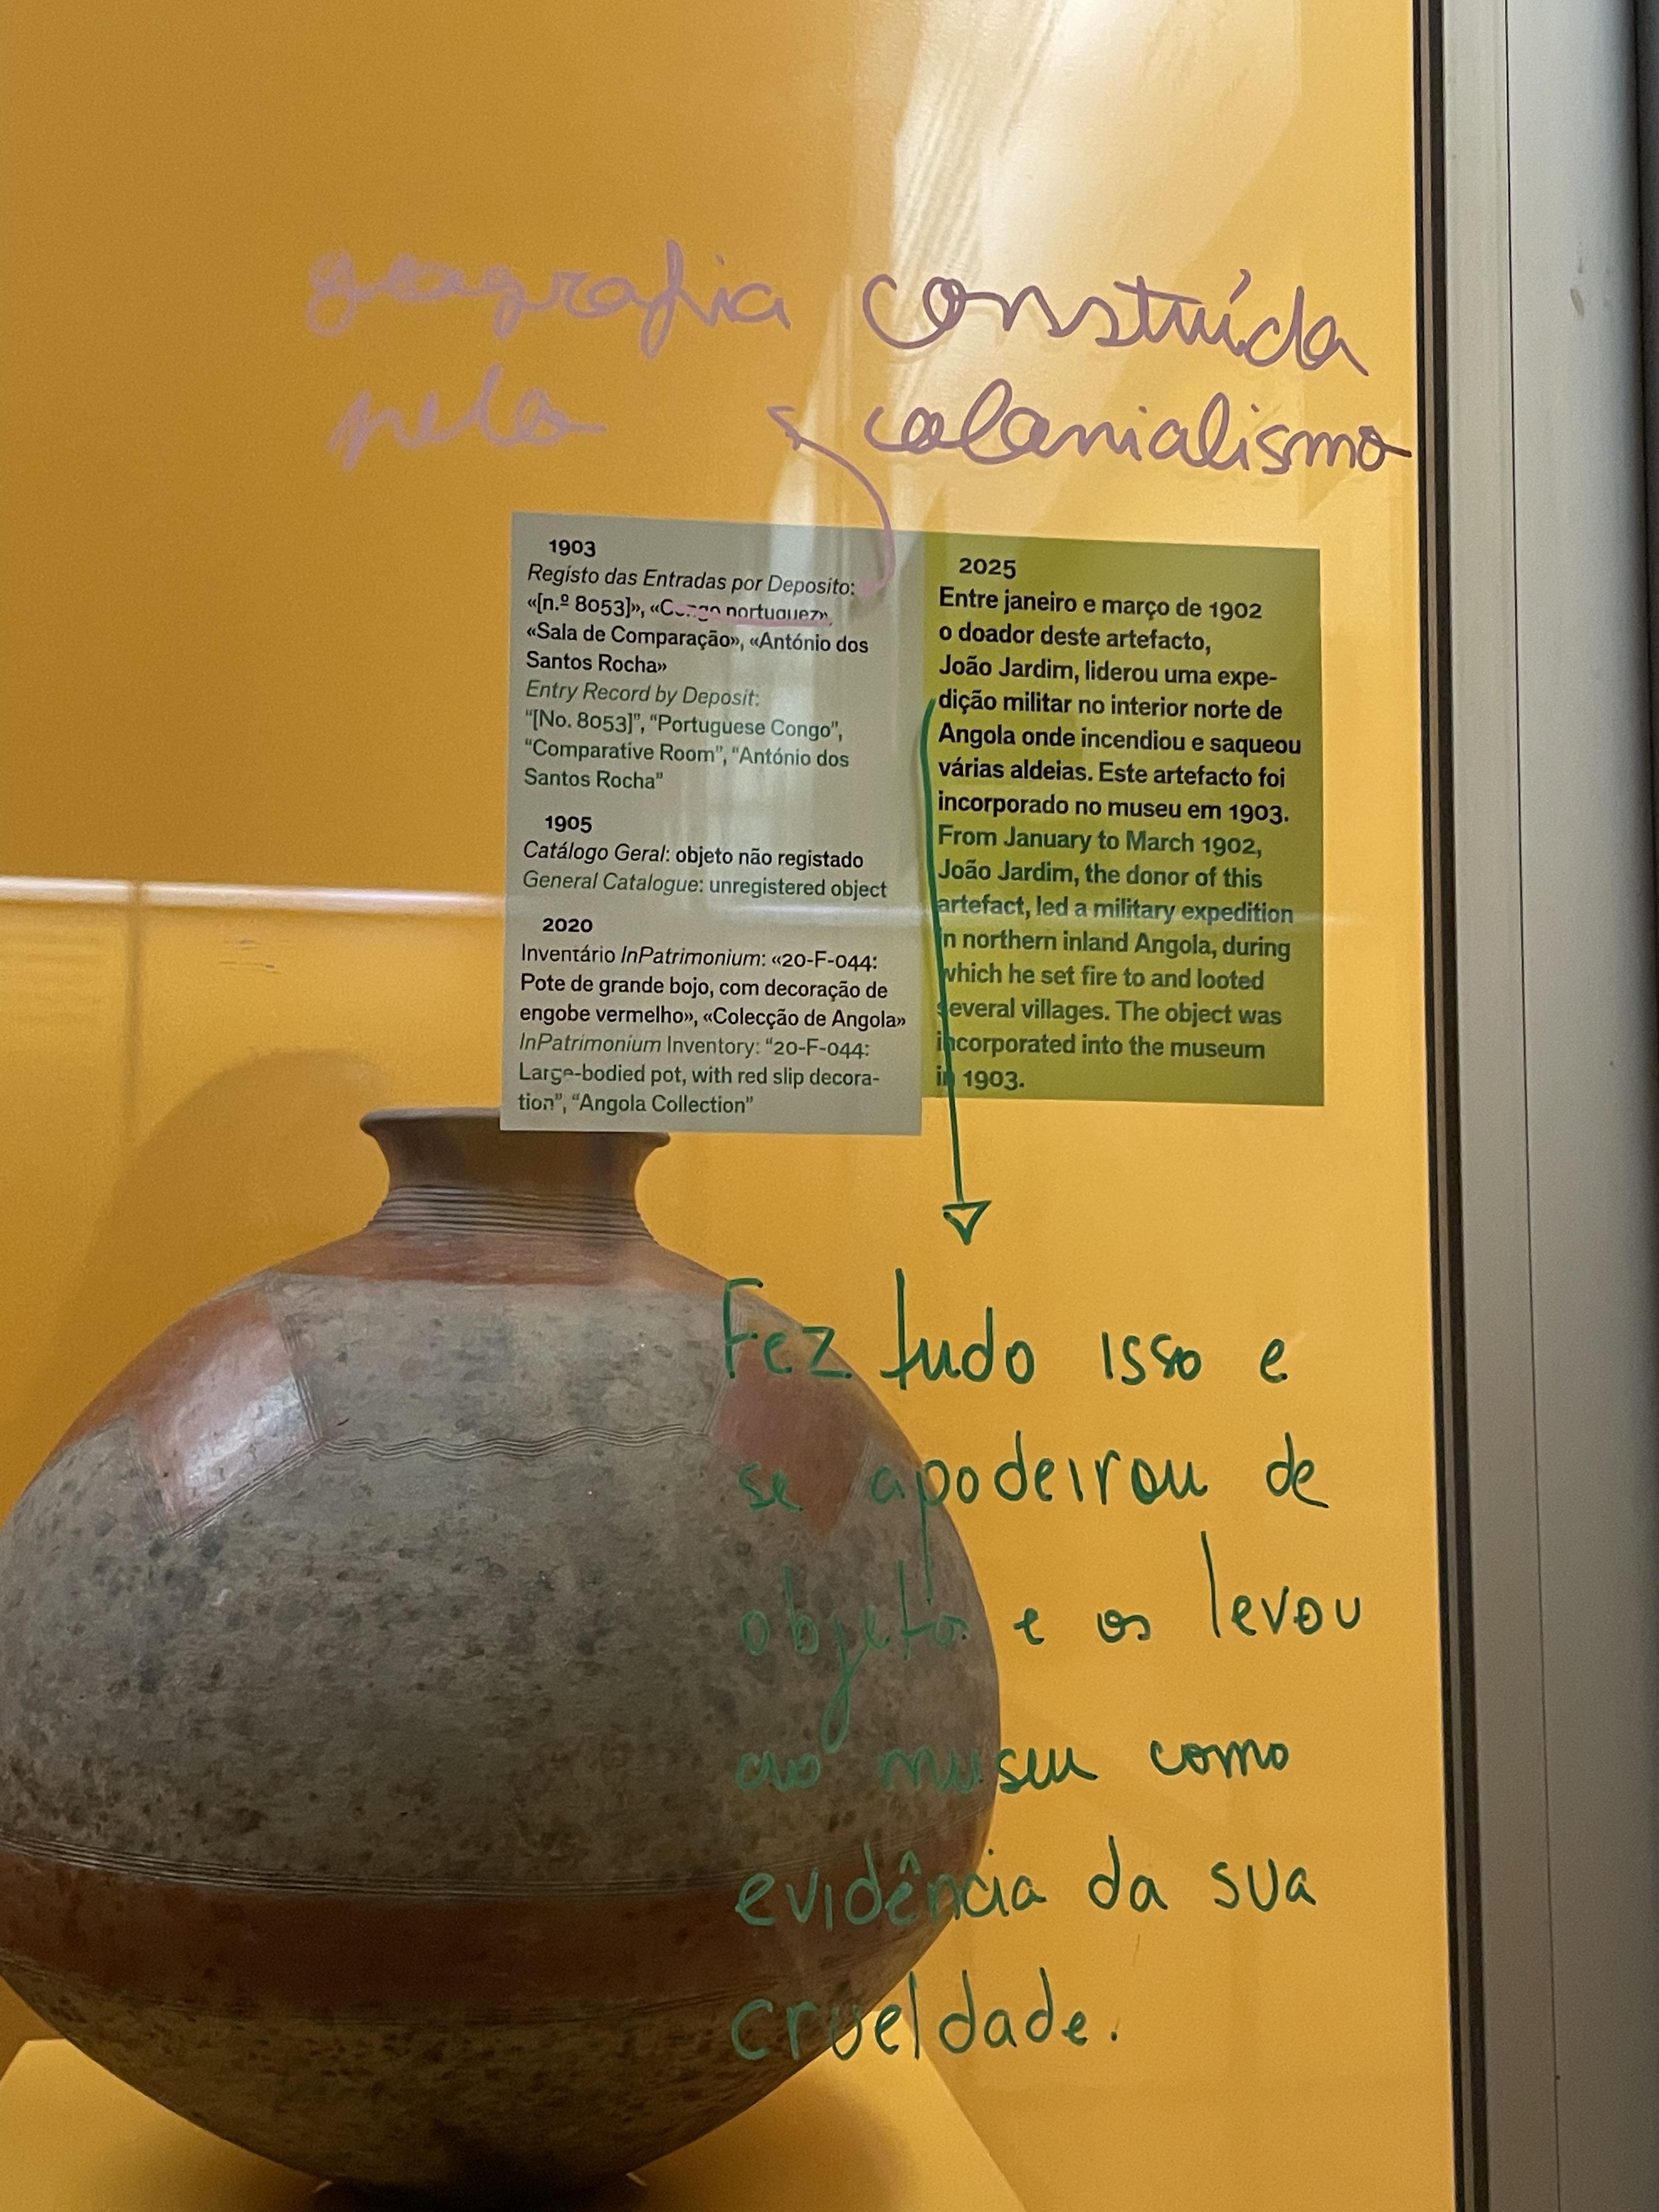 geografia construída
pelo colonialismo
1903
Registo das Entradas por Deposito:
«[n.º 8053]», «Congo portuguez»,
«Sala de Comparação», «António dos
Santos Rocha»
Entry Record by Deposit:
“[No. 8053]”, “Portuguese Congo”,
“Comparative Room”, “António dos
Santos Rocha”
1905
Catálogo Geral: objeto não registado
General Catalogue: unregistered object
2020
Inventário InPatrimonium: «20-F-044:
Pote de grande bojo, com decoração de
engobe vermelho», «Colecção de Angola»
InPatrimonium Inventory: “20-F-044:
Large-bodied pot, with red slip decora-
tion”, “Angola Collection”
2025
Entre janeiro e março de 1902
o doador deste artefacto,
João Jardim, liderou uma expe-
dição militar no interior norte de
Angola onde incendiou e saqueou
várias aldeias. Este artefacto foi
incorporado no museu em 1903.
From January to March 1902,
João Jardim, the donor of this
artefact, led a military expedition
in northern inland Angola, during
which he set fire to and looted
several villages. The object was
incorporated into the museum
in 1903.
Fez tudo isso e
se apodeirou de
objetos e os levou
ao museu como
evidência da sua
crueldade.